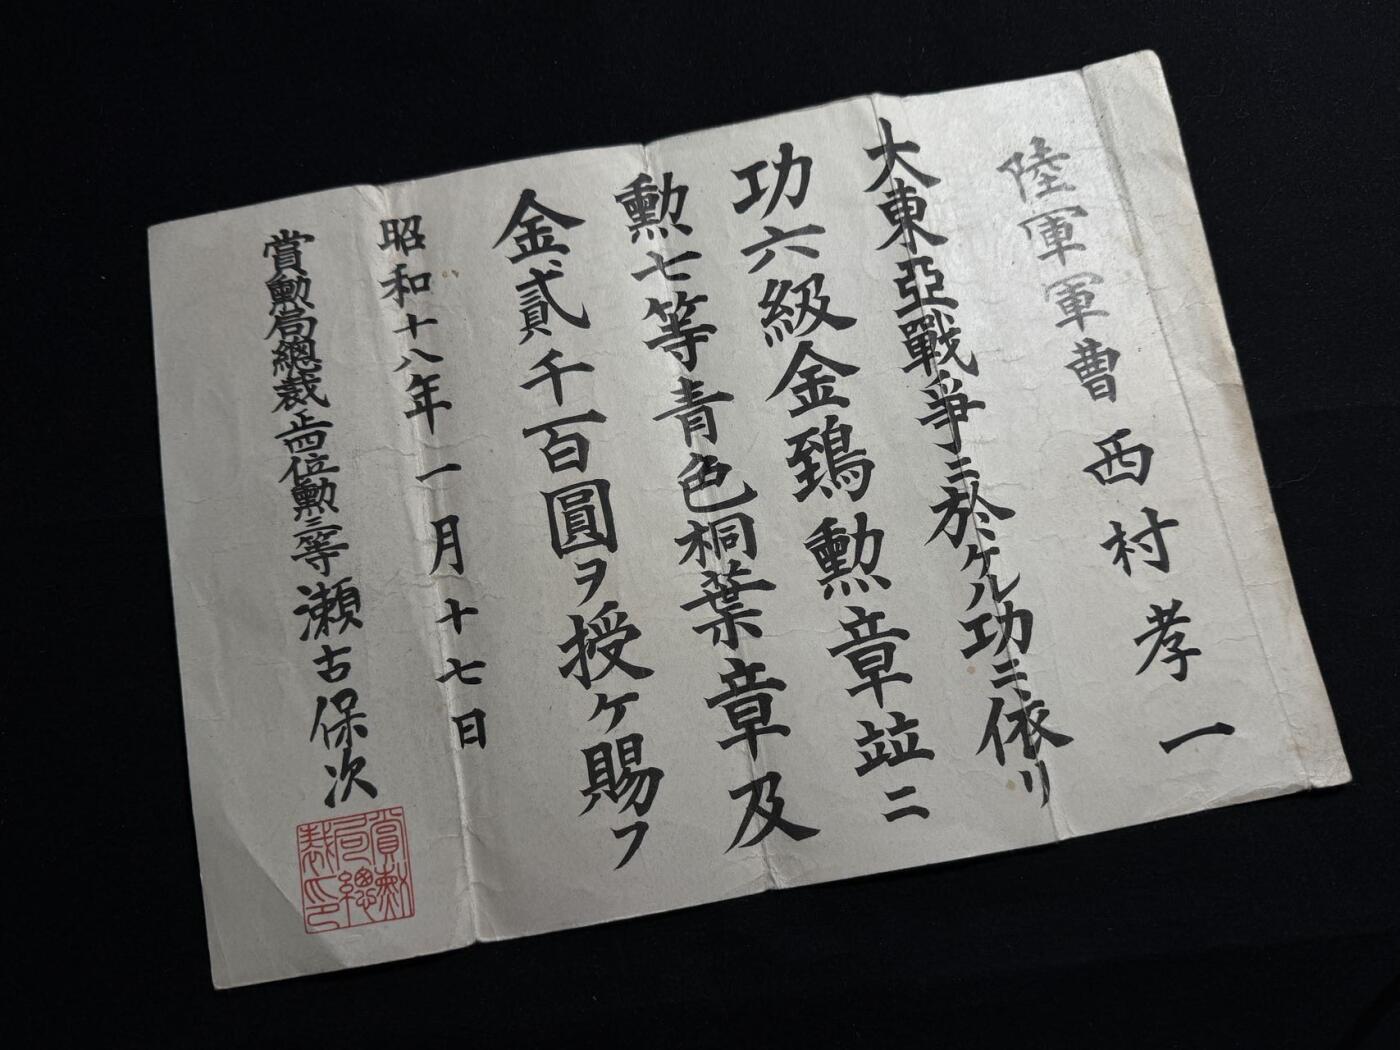 陸軍軍曹 西村孝一
大東亞戰爭ニ於ケル功ニ依リ
功六級金鵄勲章竝ニ
勲七等青色桐葉章及
金貳千百圓ヲ授ケ賜フ
昭和十八年一月十七日
賞勲局總裁正四位勲三等瀬古保次
賞勲
局總
裁印